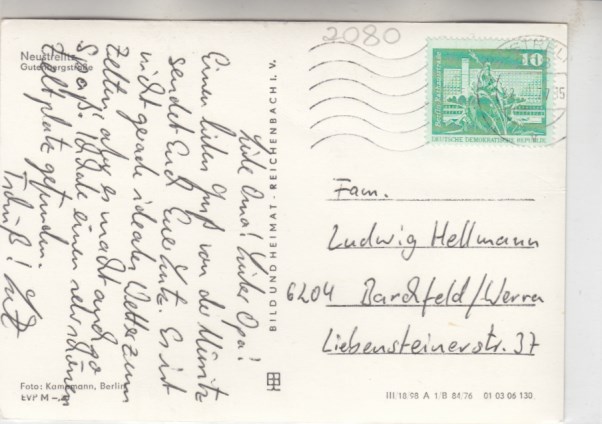 2080
Neustrelitz
Gutenbergstraße
Liebe Oma! Lieber Opa!
Einen lieben Gruß von der Müritz
sendet Euch Eure Ente. Es ist
nicht gerade ideales Wetter zum
Zelten, aber es macht auch so
Spaß. Habe einen sehr schönen
Zeltplatz gefunden.
Tschüß!
Foto: Kampmann, Berlin
EVP M -,
BILD UND HEIMAT · REICHENBACH i. V.
10
DEUTSCHE DEMOKRATISCHE REPUBLIK
Fam.
Ludwig Hellmann
6204 Barchfeld/Werra
Liebensteinerstr. 37
III/18/98 A 1/B 84/76 01 03 06 130